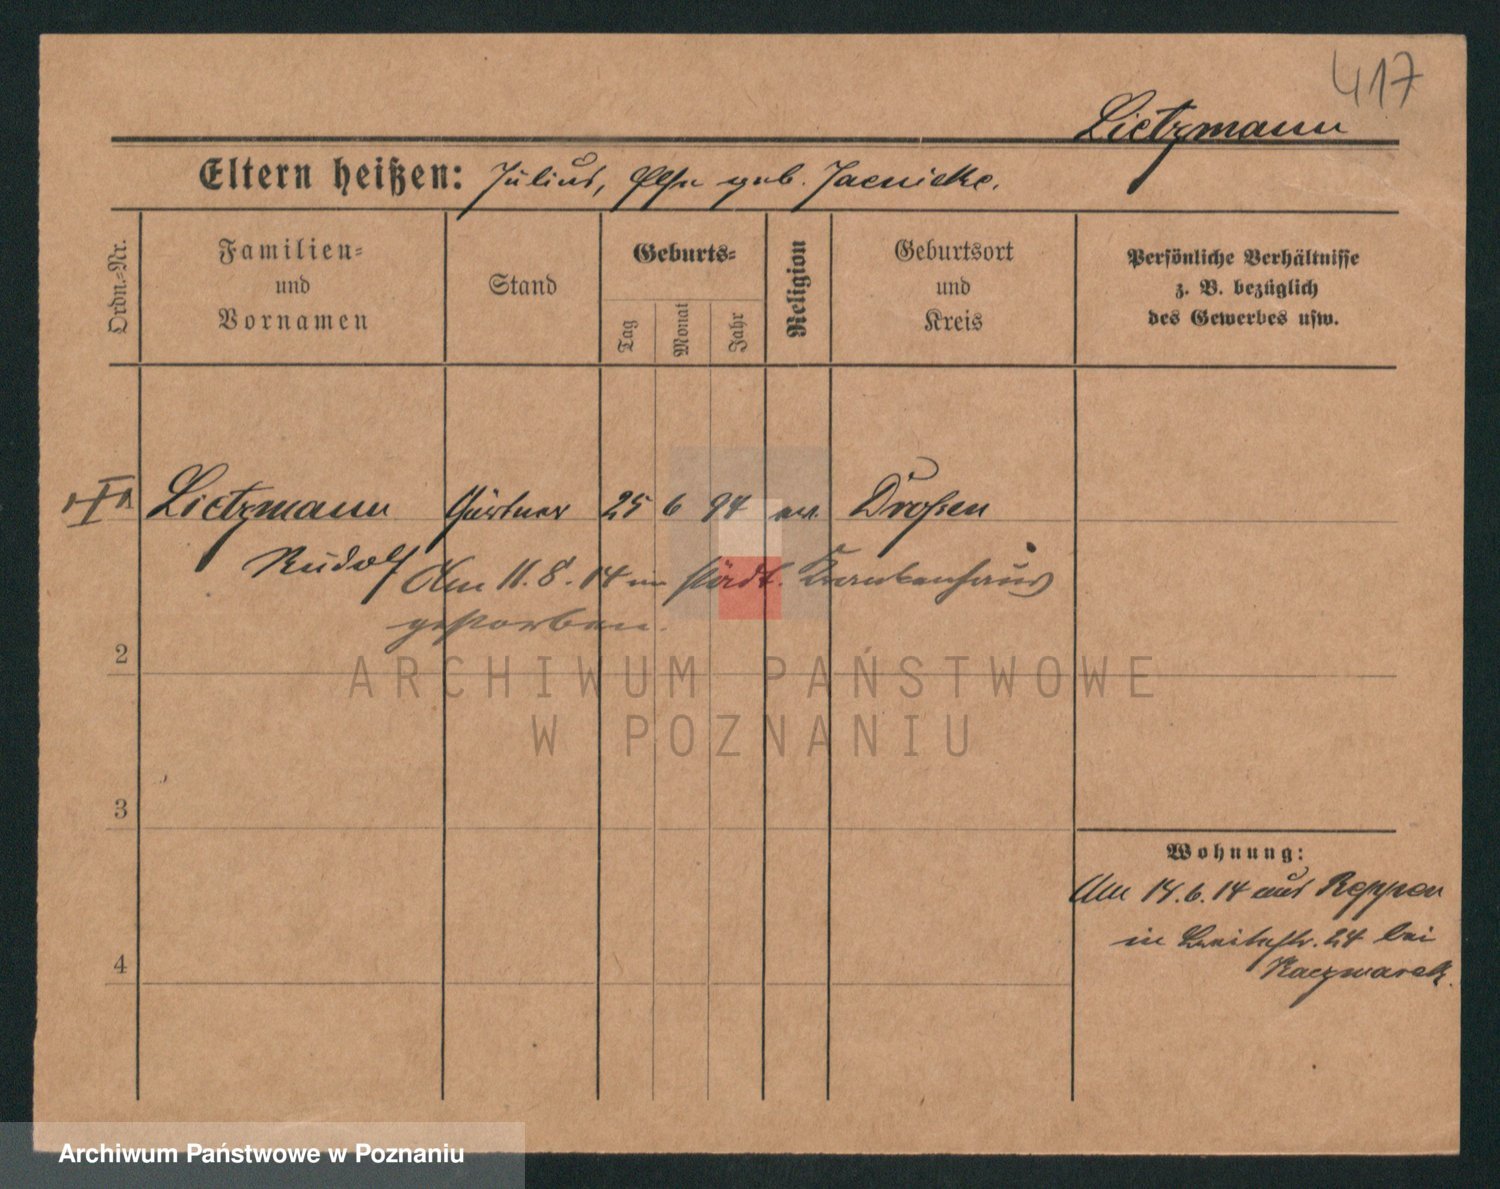 417
Lietzmann
Eltern heißen: Julius, Else geb. Jaenicke.
Ordn.=Nr.
Familien=
und
Vornamen
Stand
Geburts=
Tag
Monat
Jahr
Religion
Geburtsort
und
Kreis
Persönliche Verhältnisse
z. B. bezüglich
des Gewerbes usw.
Lietzmann Gärtner 25 6 94 ev. Drossen
Rudolf Am 11. 8. 14 im städt. Krankenhaus
gestorben.
2
3
4
Wohnung:
Am 14. 6. 14 aus Reppen
in Breitestr. 24 bei
Kaczmarek.
ARCHIWUM PAŃSTWOWE
W POZNANIU
Archiwum Państwowe w Poznaniu